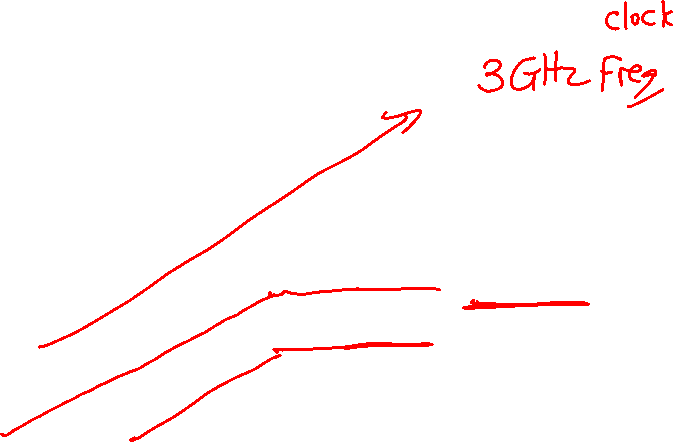 clock
3GHz Freq